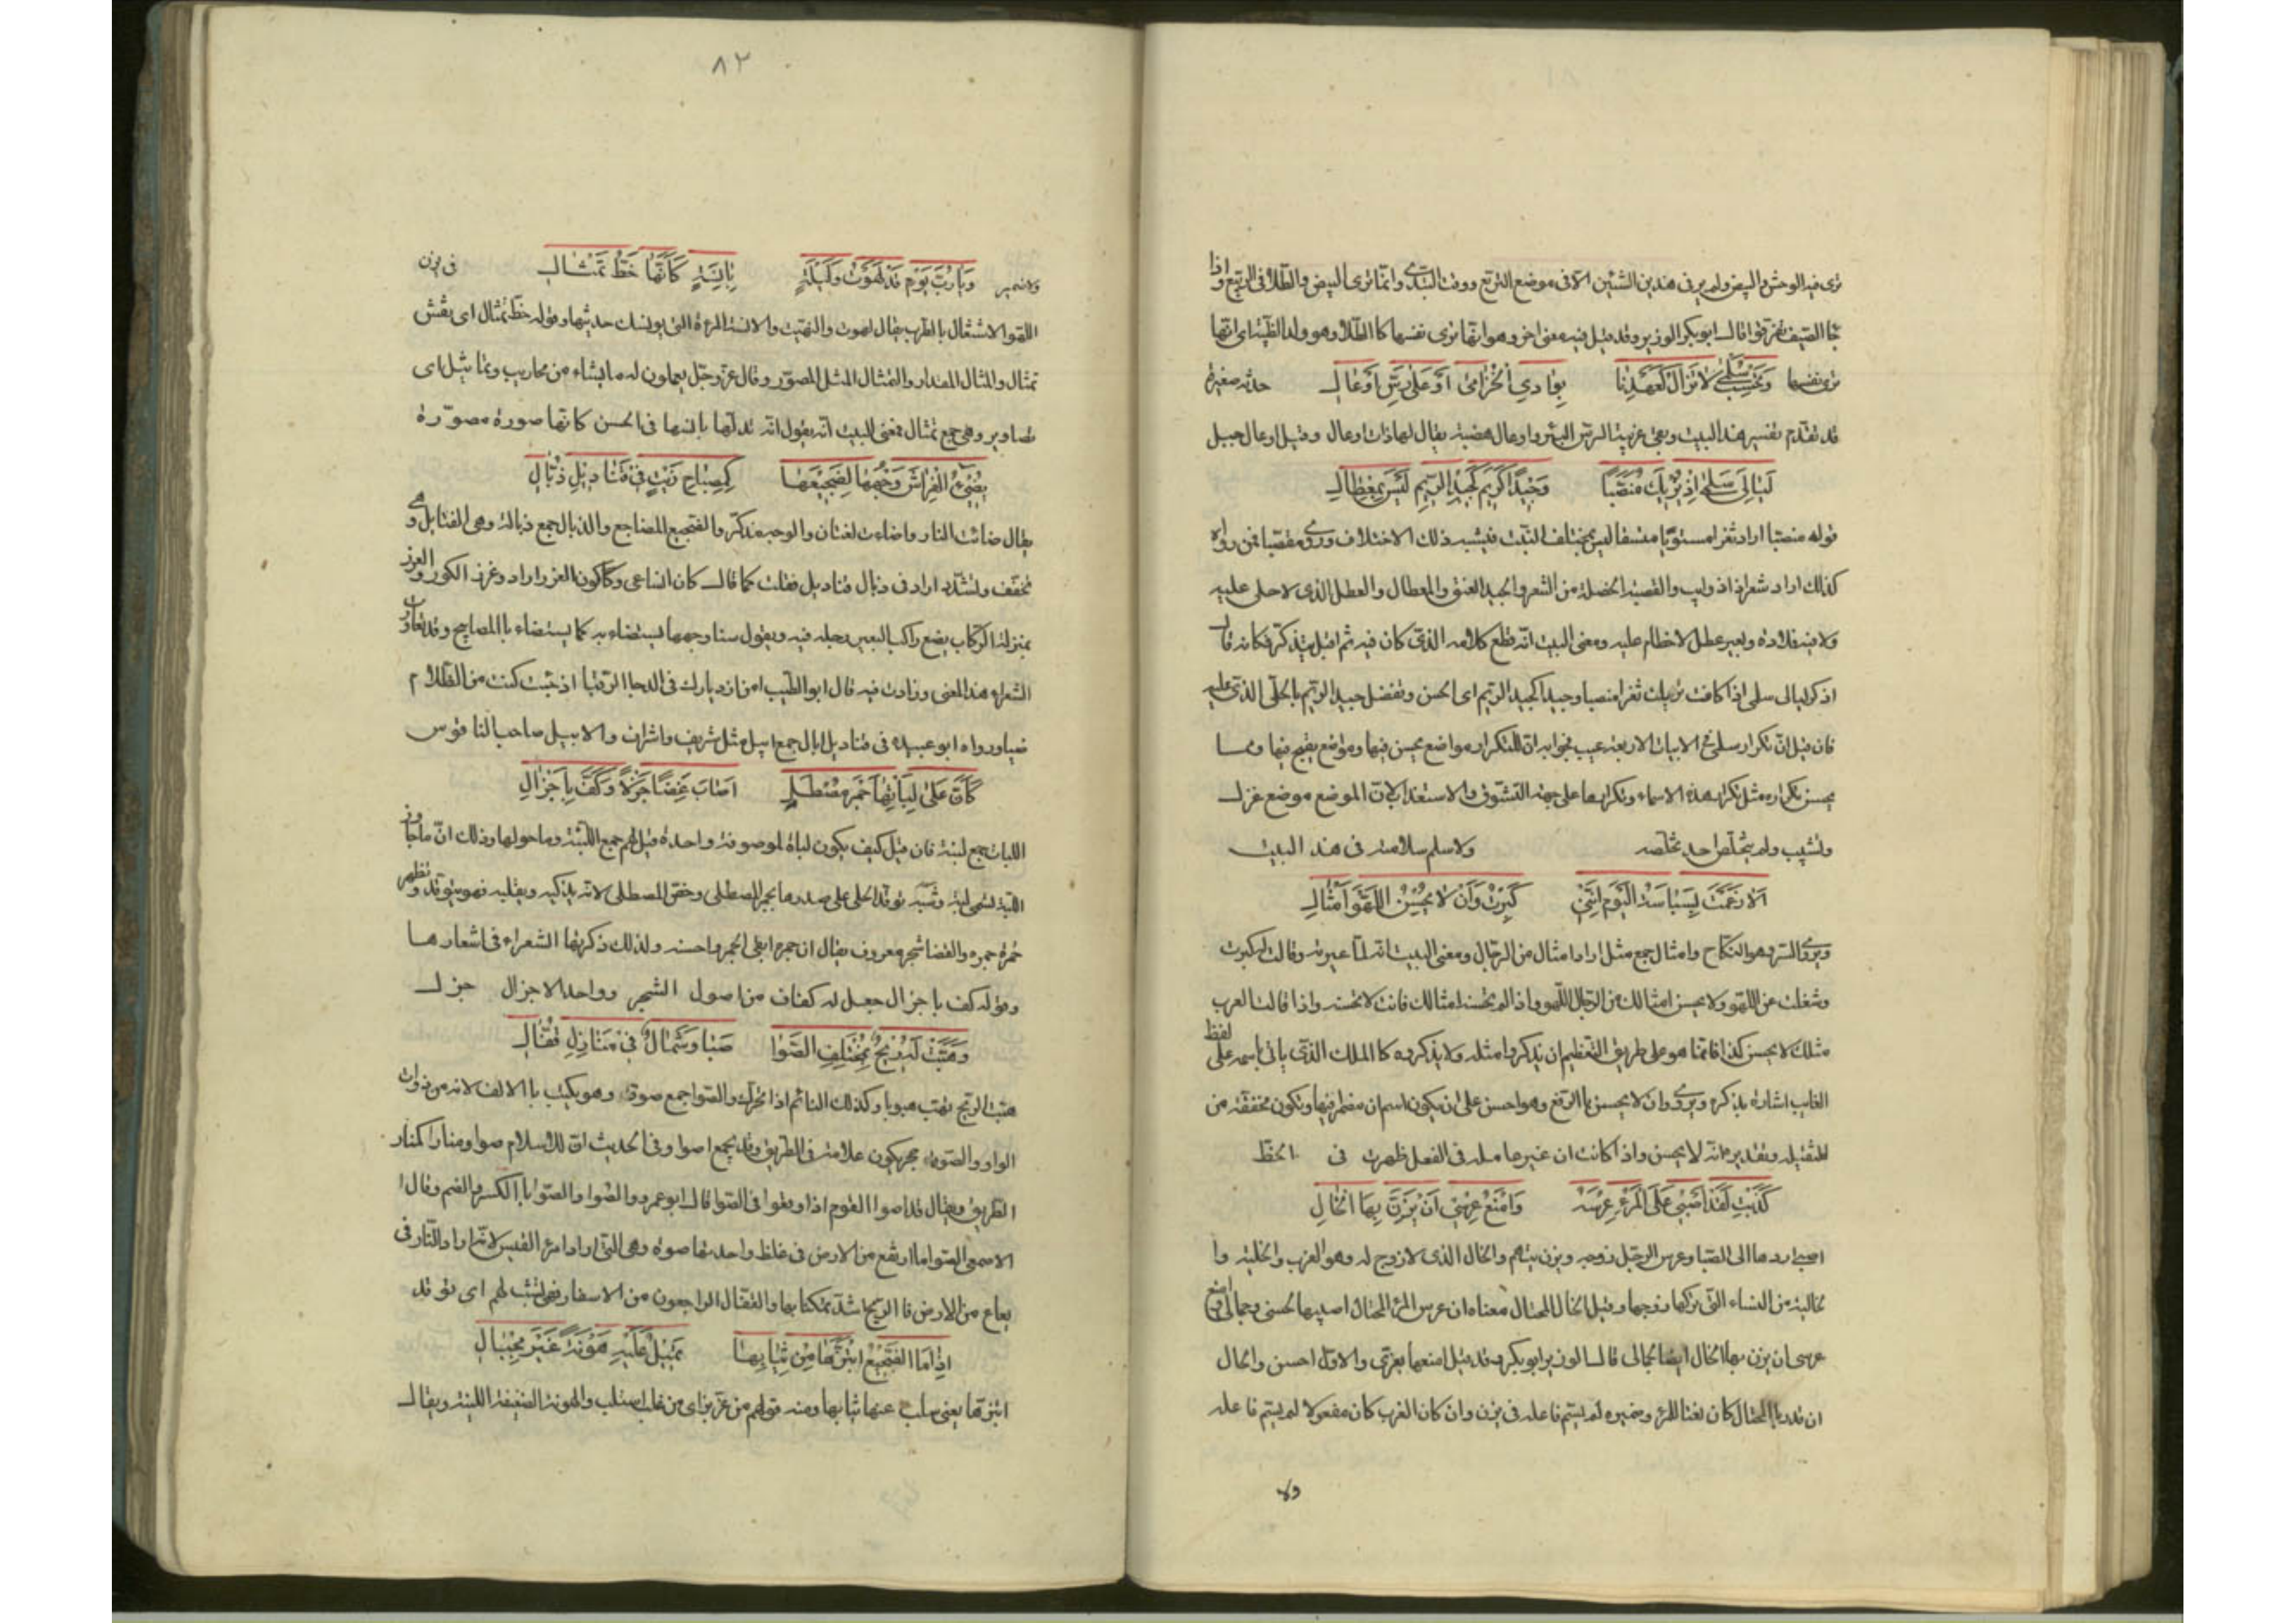 ترى فيه الوحش والبيض ولم ير في هذين الشيئين الا في موضع التربع ووقت التبدي وانما ترى البيض والطلا في الربيع واذا
جا الصيف تفرقوا قال ابو بكر الوزير وقد قيل فيه معنى اخر وهو انها ترى نفسها كالطلا وهو ولد الظبية اي انها
ترى نفسها وَتَحْسِبُ سَلْمَى لا تَزَالُ كَعَهْدِنَا بِوَادِي الْخُزَامَى اَوْ عَلَى رَسِّ اَوْعَالِ حدثه صغيرة
قد تقدم تفسير هذا البيت وهي عربية الرس البئر واوعال هضبة يقال لها ذات اوعال وقيل اوعال جبل
لَيَالِيَ سَلْمَى اِذْ تُرِيكَ مُنَصَّبًا وَجِيْدًا كَجِيدِ الرِّيْمِ لَيْسَ بِمِعْطَالِ
قوله منصبا اراد ثغرا مستويا متسقا ليس بمختلف النبت فيشبه ذلك الاختلاف وروى مقصبا فمن رواه
كذلك اراد شعرا ذا ذوايب والقصيبة الخصلة من الشعر والجيد العنق والمعطال والعطل الذي لا حلى عليه
ولا فيه قلادة وبعير عطل لا خطام عليه ومعنى البيت انه قطع كلامه الذي كان فيه ثم اقبل يتذكر فكانه قال
اذكر ليالي سلمى اذا كانت تريك ثغرا منصبا وجيدا كجيد الريم اي الحسن وتفضل جيد الريم بالحلى الذي عليه
فان قيل ان تكرار سلمى في الابيات الاربعة عيب فجوابه ان للتكرار مواضع يحسن فيها ومواضع يقبح فيها ومما
يحسن تكراره مثل تكرار هذه الاسماء وتكرارها على جهة التشوق والاستعذاب لان الموضع موضع غزل
وتشبيب ولم يتخلص احد تخلصه ولا سلم سلامته في هذا البيت
اَلا زَعَمَتْ بَسْبَاسَةُ الْيَوْمَ اَنَّنِيْ كَبِرْتُ وَاَنْ لا يُحْسِنُ اللَّهْوَ اَمْثَالِي
ويروى السر وهو النكاح وامثال جمع مثل اراد امثال من الرجال ومعنى البيت انه لما عيرته وقالت له كبرت
وشغلت عن اللهو ولا يحسن امثالك من الرجال اللهو واذا لم يحسنه امثالك فانت لا تحسنه واذا قالت العرب
مثلك لا يحسن كذا فانما هو على طريق التعظيم ان يذكروا مثله ولا يذكروه كا الملك الذي ياتي باسمه على لفظ
الغايب اشارة بذكره ويروى وان لا يحسن بالرفع وهو احسن على ان يكون اسم ان مضمر فيها وتكون مخففة من
المثقيلة وتقديره انه لا يحسن واذا كانت ان غير عاملة في الفعل ظهرت في الخط
كَذَبْتِ لَقَدْ اُصْبِيْ عَلَى الْمَرْءِ عِرْسَهُ وَاَمْنَعُ عِرْسِيْ اَنْ يُزَنَّ بِهَا الْخَالِي
اصبي اردها الى الصبا وعرس الرجل زوجه ويزن يتهم والخال الذي لا زوج له وهو العزب والخلية وا
لخالية من النساء التي تركها زوجها وقيل الخال المختال معناه ان عرس المرء المختال اصبيها لحسني وجمالي وامنع
عرسي ان يزن بها الخال ايضا لجمالي قال الوزير ابو بكر وقد قيل امنعها بعزتي والاول احسن والخال
ان قدر بالمختال كان نعتا للمرء وضميره لم يسم فاعله في يزن وان كان العزب كان مفعولا لم يسم فاعله
ولا
٨٢
ولا ضمير وَيَا رُبَّ يَوْمٍ قَدْ لَهَوْتُ وَلَيْلَةٍ بِاٰنِسَةٍ كَاَنَّهَا خَطُّ تِمْثَالِ في يزن
اللهو الاشتغال بالطرب يقال لهوت والتهيت والانسة المرءة التي يونسك حديثها وقوله خط تمثال اي نقش
تمثال والمثال المقدار والتمثال المثل المصور وقال عز وجل يعملون له ما يشاء من محاريب وتماثيل اي
تصاوير وهي جمع تمثال معنى البيت انه يقول انه تدلها بانسها في الحسن كانها صورة مصورة
يُضِيْءُ الْفِرَاشَ وَجْهُهَا لِضَجِيْعِهَا كَمِصْبَاحِ زَيْتٍ فِيْ قَنَادِيْلِ ذُبَّالِ
يقال ضائت النار واضاءت لغتان والوجه مذكر والضجيع المضاجع والذبال جمع ذبالة وهي الفتايل وهي
تخفف وتشدد اراد في ذبال قناديل فقلب كما قال كان الساعي وكاكون الغرز اراد وغرز الكور والغرز
بمنزلة الركاب يضع راكب البعير رجله فيه ويقول سنا وجهها يستضاء به كما يستضاء بالمصابيح وقد تعاورت
الشعراء هذا المعنى وزادت فيه قال ابو الطيب امن ازديارك في الدجا الرقبا اذ حيث كنت من الظلام
ضيا ورواه ابو عبيدة في قناديل ابال جمع ابيل مثل شريف واشراف والابيل صاحب الناقوس
كَاَنَّ عَلَى لَبَّاتِهَا جَمْرَ مُصْطَلٍ اَصَابَ غَضًا جَزْلاً وَكُفَّ بِاَجْزَالِ
اللبات جمع لبة فان قيل كيف يكون لباة لموصوفة واحدة قيل لهم جمع اللبة وما حولها وذلك ان ما جاوز
اللبة تسمى لبة وشبه توقد الحلى على صدرها بجمر المصطلي وخص المصطلي لانه يذكيه ويقلبه فهو يتوقد وتظهر
حمرة جمره والغضا شجر معروف يقال ان جمره ابقى الجمر واحسنه ولذلك ذكرتها الشعراء في اشعارها
وقوله كف باجزال جعل له كفاف من اصول الشجر وواحد الاجزال جزل
وَهَبَّتْ لَهُ رِيْحٌ بِمُخْتَلِفِ الصُّوَا صَبًا وَشَمَالٌ فِيْ مَنَازِلِ قُفَّالِ
هبت الريح تهب هبوبا وكذلك النائم اذا تحرك والصوا جمع صوة وهو يكتب با الالف لانه من ذوات
الواو والصوة حجر يكون علامة في الطريق وقد يجمع اصوا وفي الحديث ان للاسلام صوا ومنارا كمنار
الطريق ويقال قد اصوا القوم اذا وقعوا في الصوا قال ابو عمرو والصوا والصوا با الكسر والضم وقال ا
لاصمعي الصوا ما ارتفع من الارض في غلظ واحدتها صوة وهي التي اراد امرؤ القيس لانه اراد النار في
يفاع من الارض فا الريح اشد تمكنا بها والقفال الراجعون من الاسفار فهي تشب لهم اي توقد
اِذَا مَا الضَّجِيْعُ ابْتَزَّهَا مِنْ ثِيَابِهَا تَمِيْلُ عَلَيْهِ هَوْنَةً غَيْرَ مِجْبَالِ
ابتزها يعني سلب عنها ثيابها ومنه قولهم من عز بز اي من غلب استلب والهونة الضعيفة اللينة ويقال